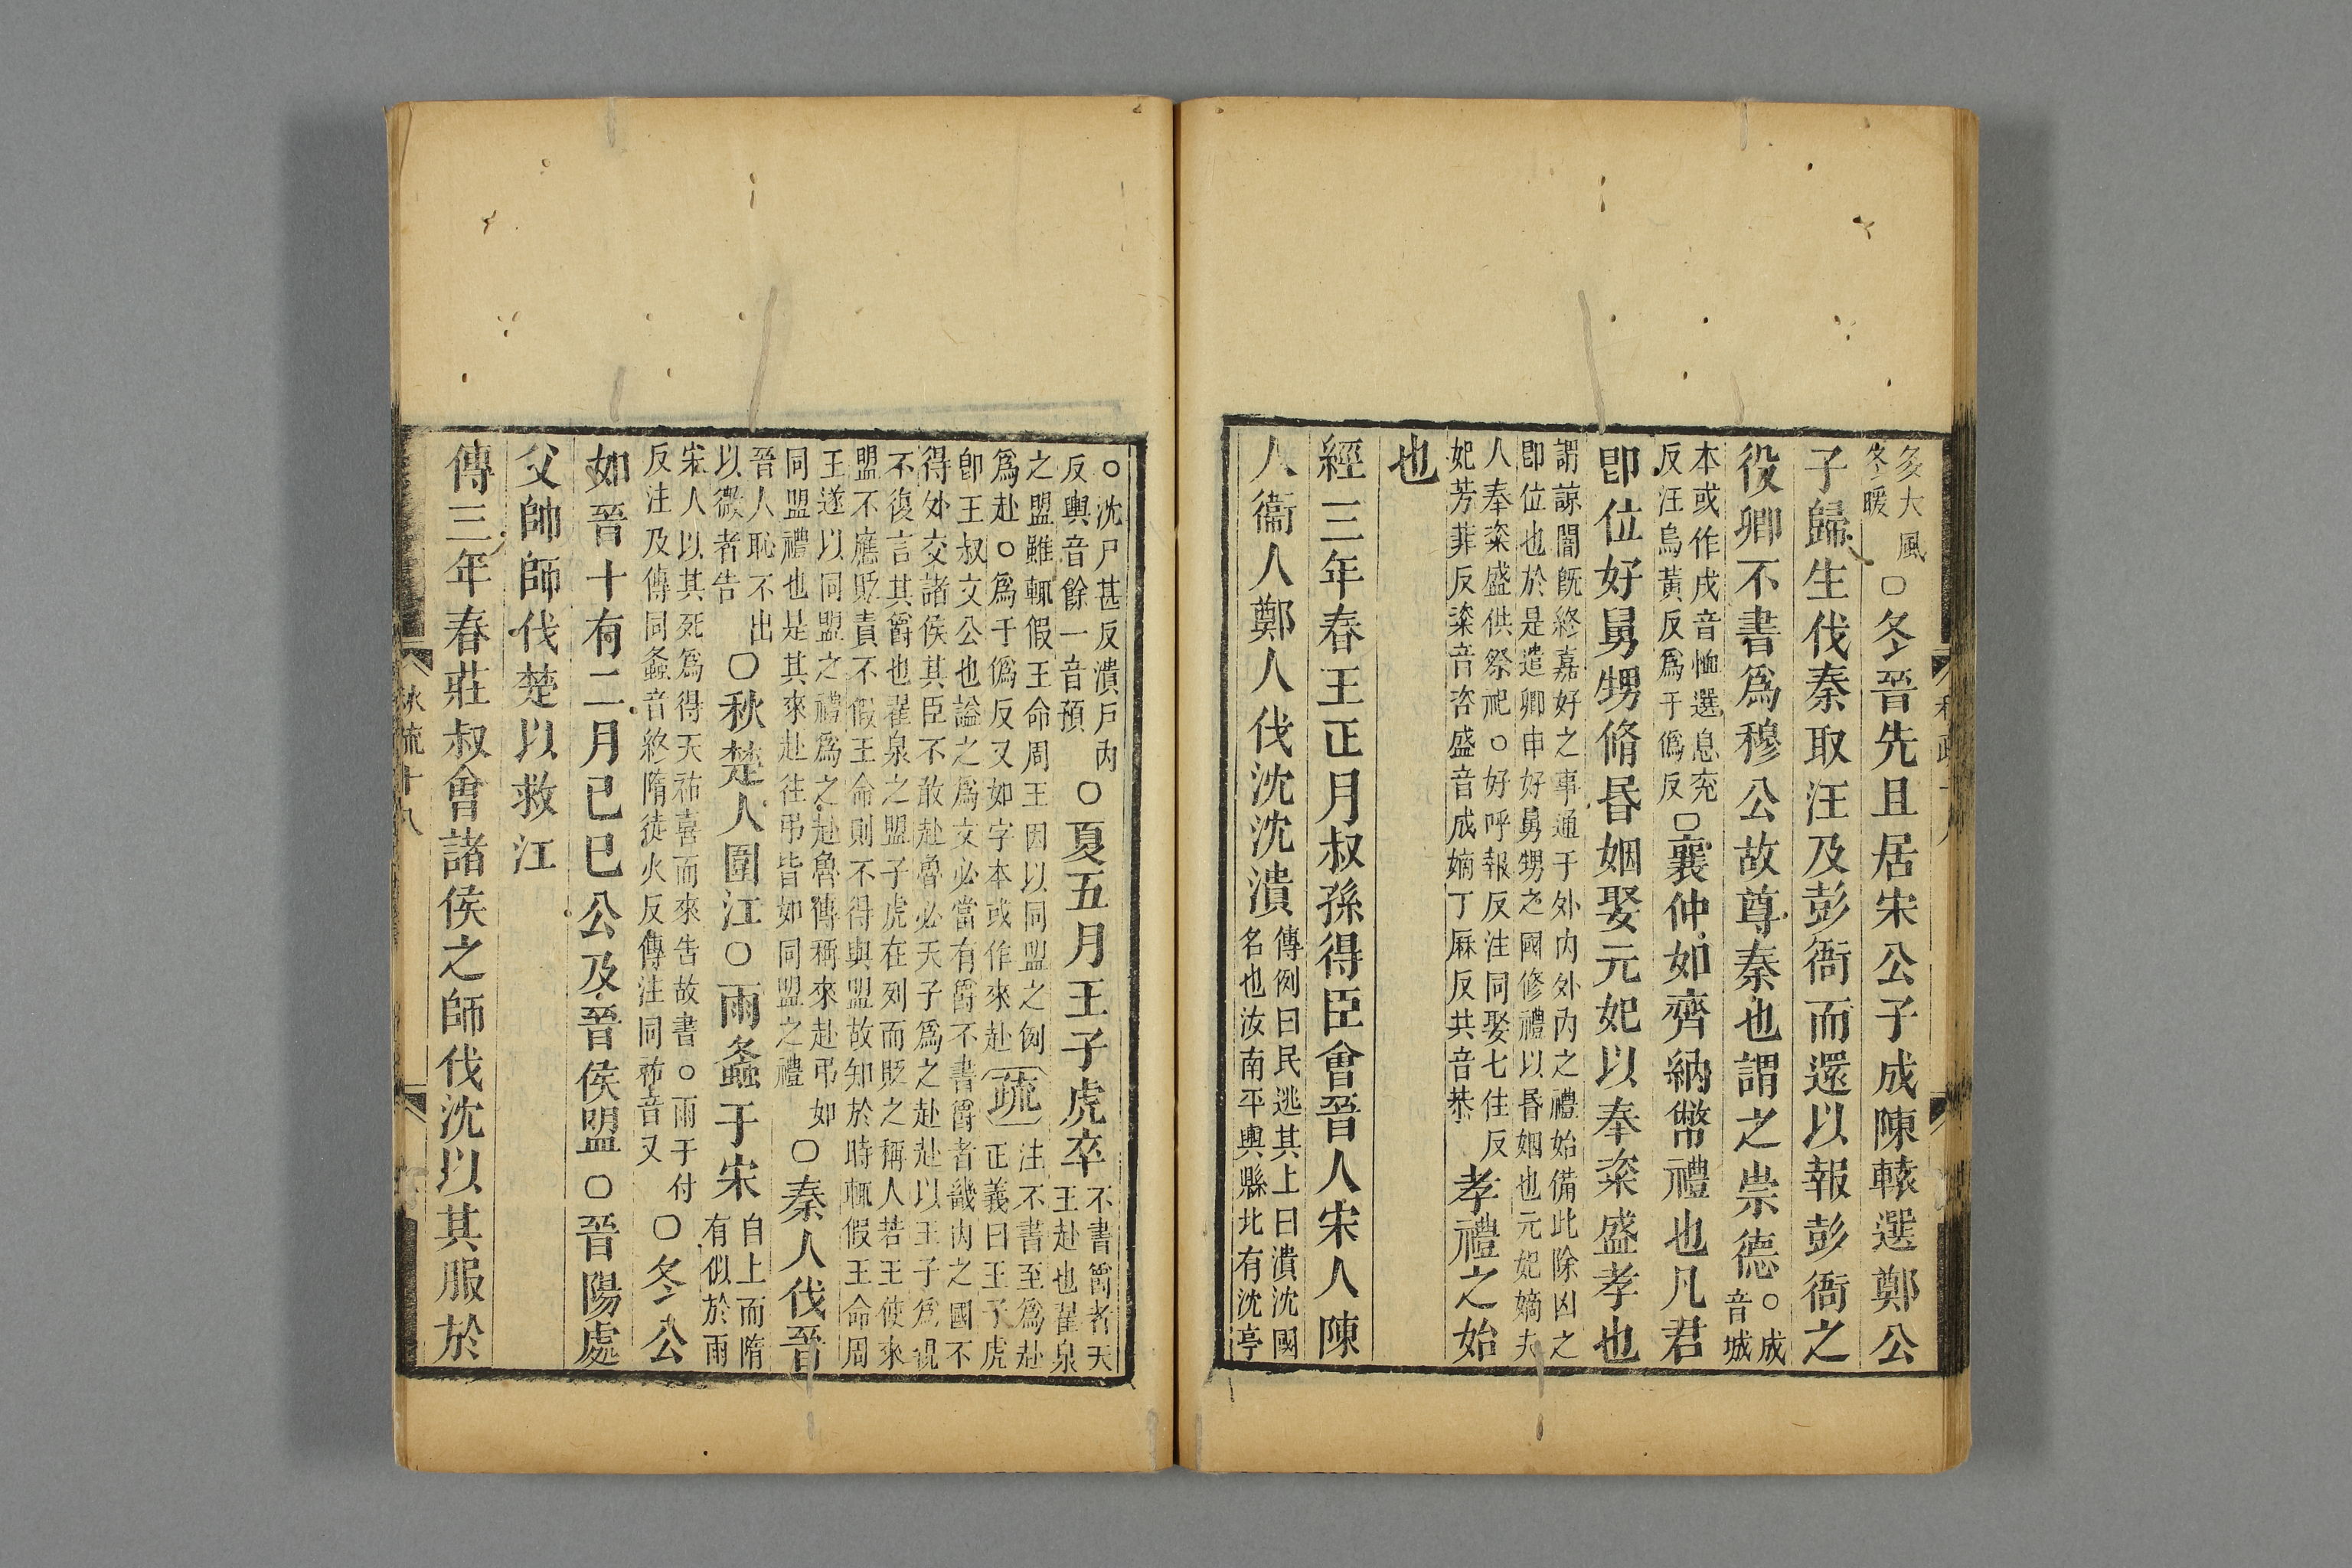 灸大風
冬暖
○冬晉先且居宋公子成陳轅選鄭公
子歸生伐秦取汪及彭衙而還以報彭衙之
役卿不書爲穆公故尊秦也謂之崇德
○成
音城
本或作戌音恤選息兖
反汪烏黃反爲于僞反
○襄仲如齊納幣禮也凡君
即位好舅甥脩昏姻娶元妃以奉粢盛孝也
謂諒闇旣終嘉好之事通于外內外內之禮始備此除凶之
即位也於是遣卿申好舅甥之國修禮以昏姻也元妃嫡夫
人奉粢盛供祭祀○好呼報反注同娶七住反
妃芳菲反粢音咨盛音成嫡丁厤反共音恭
孝禮之始
也
經三年春王正月叔孫得臣會晉人宋人陳
人衞人鄭人伐沈沈潰
傳例曰民逃其上曰潰沈國
名也汝南平輿縣北有沈亭
○沈尸甚反潰戸內
反輿音餘一音預
○夏五月王子虎卒
不書爵者天
王赴也翟泉
之盟雖輒假王命周王因以同盟之例
爲赴○爲于僞反又如字本或作來赴
疏
注不書至爲赴
正義曰王子虎
卽王叔文公也謚之爲文必當有爵不書爵者畿內之國不
得外交諸侯其臣不敢赴魯必天子爲之赴赴以王子爲親
不復言其爵也翟泉之盟子虎在列而貶之稱人若王使來
盟不應貶責不假王命則不得與盟故知於時輒假王命周
王遂以同盟之禮爲之赴魯傳稱來赴弔如
同盟禮也是其來赴往弔皆如同盟之禮
○秦人伐晉
晉人恥不出
以微者告
○秋楚人圍江○雨螽于宋
自上而隋
有似於雨
宋人以其死爲得天祐喜而來告故書○雨于付
反注及傳同螽音終隋徒火反傳注同祐音又
○冬公
如晉十有二月己巳公及晉侯盟○晉陽處
父帥師伐楚以救江
傳三年春莊叔會諸侯之師伐沈以其服於
秋疏十八